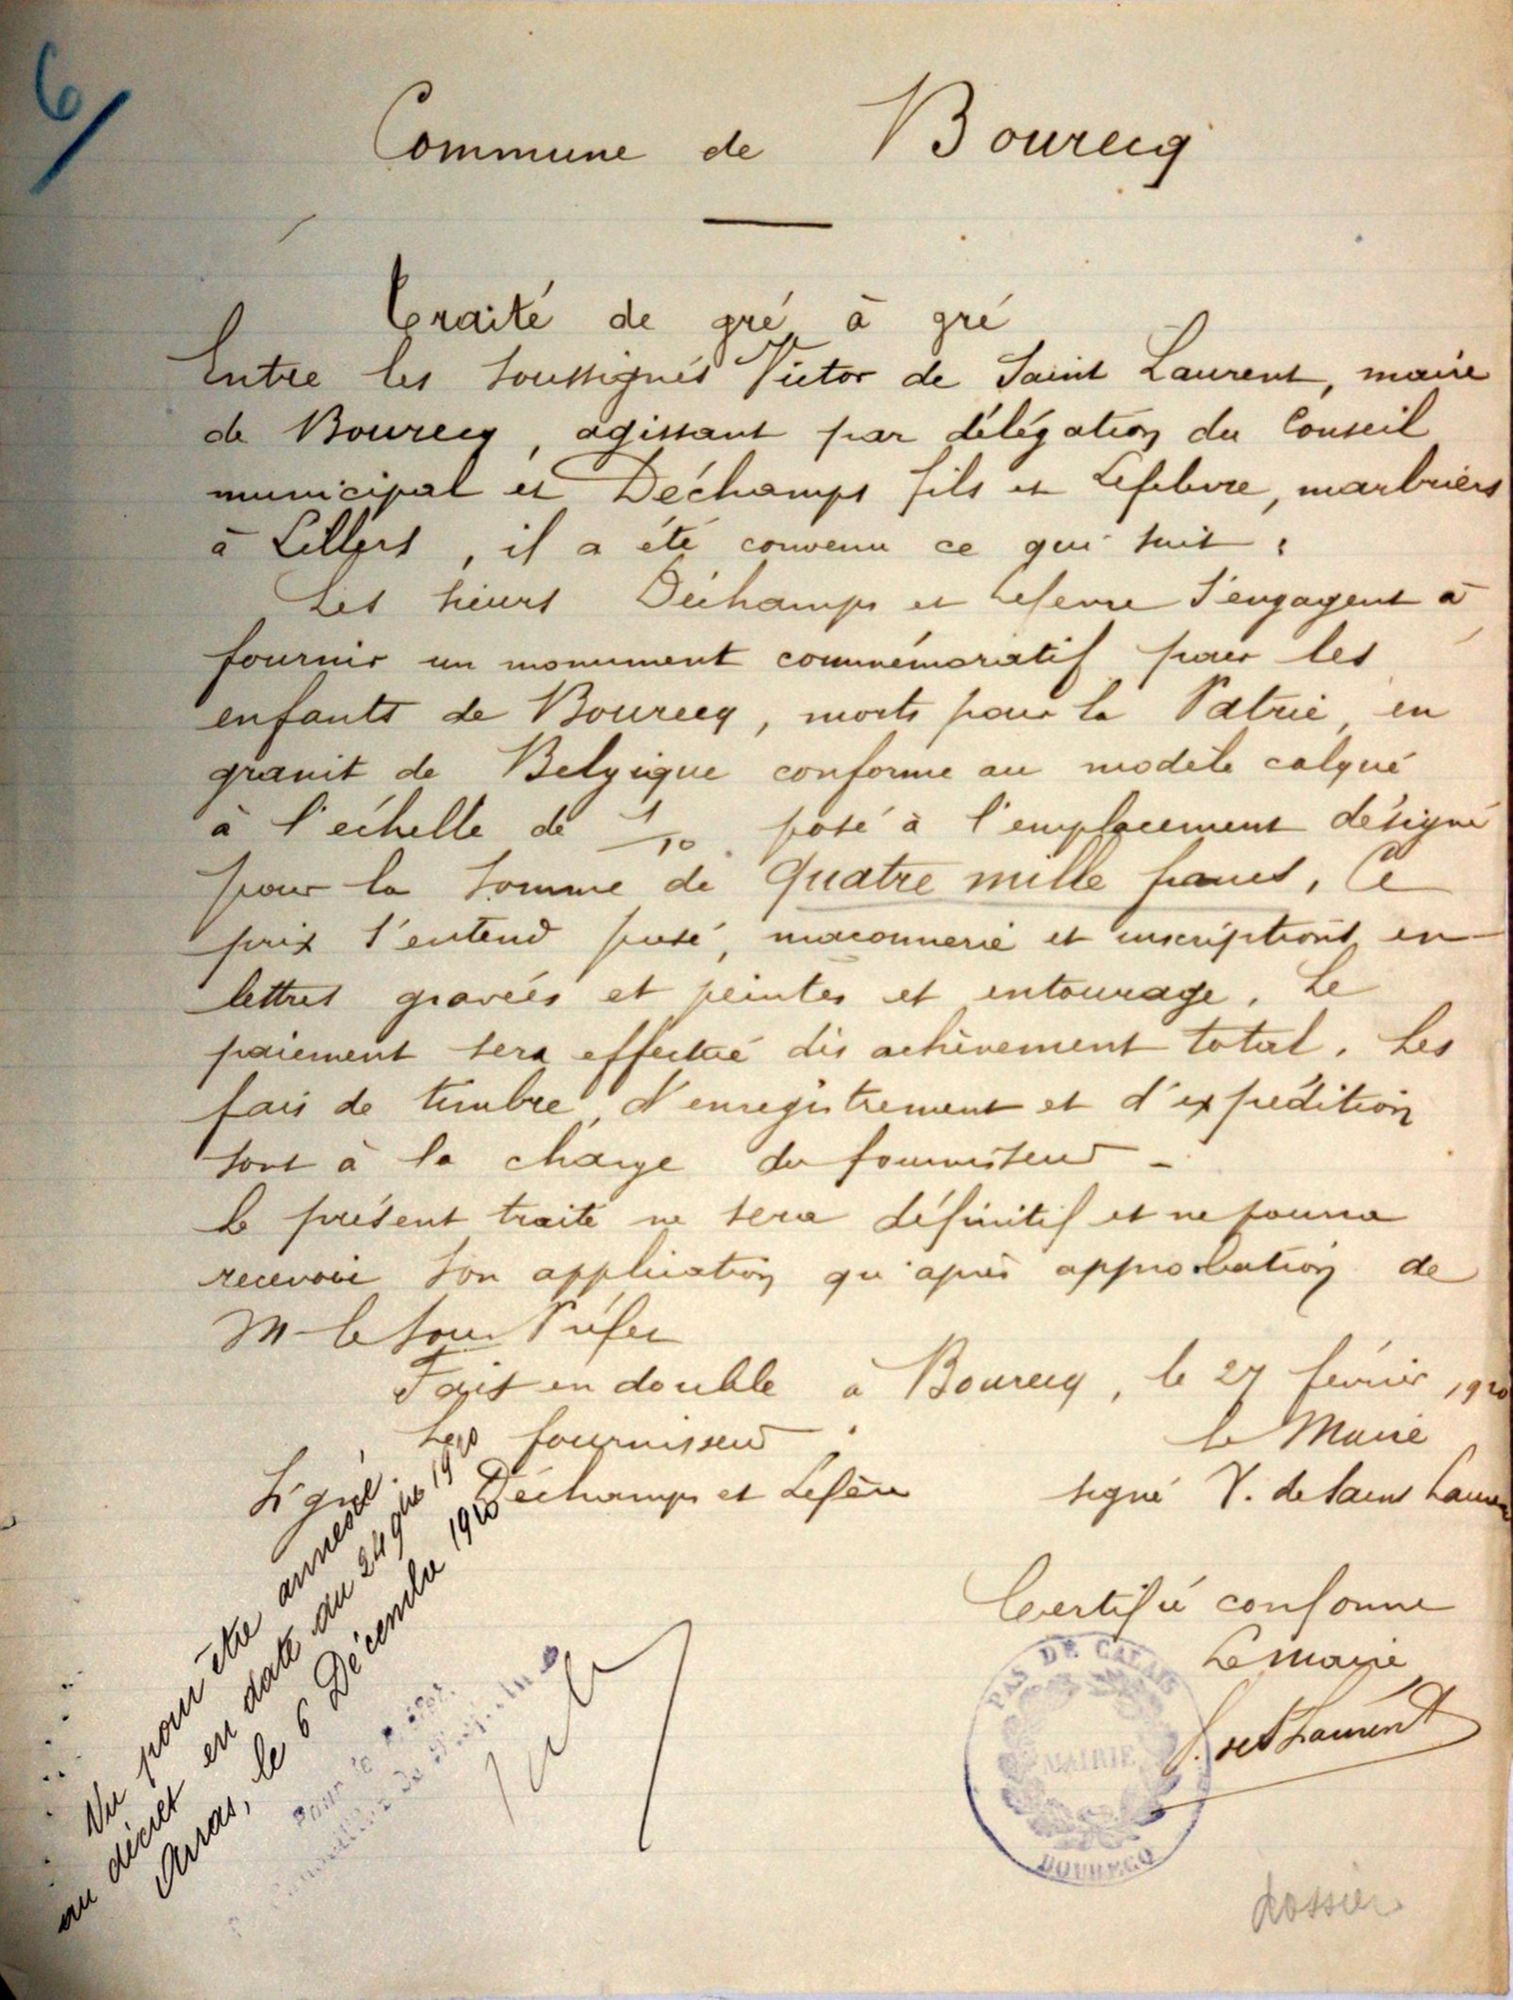 6/
Commune de Bourecq
Traité de gré à gré
Entre les soussignés Victor de Saint Laurent, maire
de Bourecq, agissant par délégation du Conseil
municipal et Déchamps fils et Lefebvre, marbriers
à Lillers, il a été convenu ce qui suit :
Les sieurs Déchamps et Lefevre s'engagent à
fournir un monument commémoratif pour les
enfants de Bourecq, morts pour la Patrie, en
granit de Belgique conforme au modèle calqué
à l'échelle de 1/10 posé à l'emplacement désigné
pour la somme de quatre mille francs. Ce
prix s'entend posé, maconnerie et inscriptions en
lettres gravées et peintes et entourage. Le
paiement sera effectué dès achèvement total. Les
fais de timbre, d'enregistrement et d'expédition
sont à la charge du fournisseur -
Le présent traité ne sera définitif et ne pourra
recevoir son application qu'après approbation de
M le Sous Préfet
Fait en double à Bourecq, le 27 février 1920
Les fournisseurs
le Maire
Signé Déchamps et Lefèvre
signé V. de Saint Laurent
Certifié conforme
Le maire
V. de St Laurent
PAS DE CALAIS
MAIRIE
BOURECQ
Vu pour être annexé
au décret en date du 24 9bre 1920
Arras, le 6 Décembre 1920
Pour le Préfet
dossier